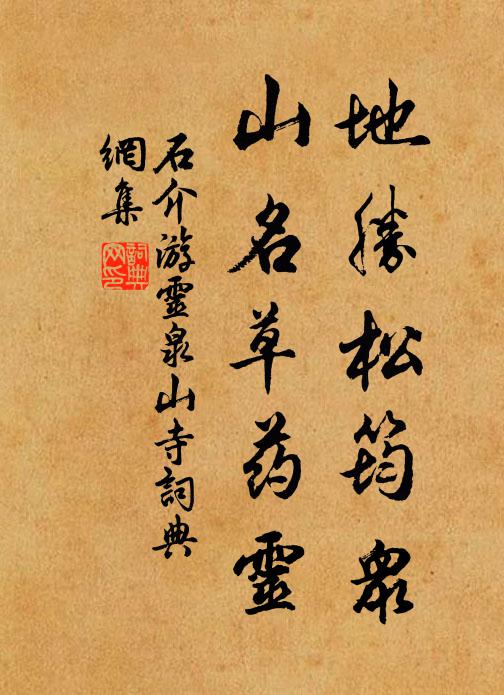 地勝松筠衆
山名草药靈
石介游靈泉山寺詞典
網集
詞典
网印